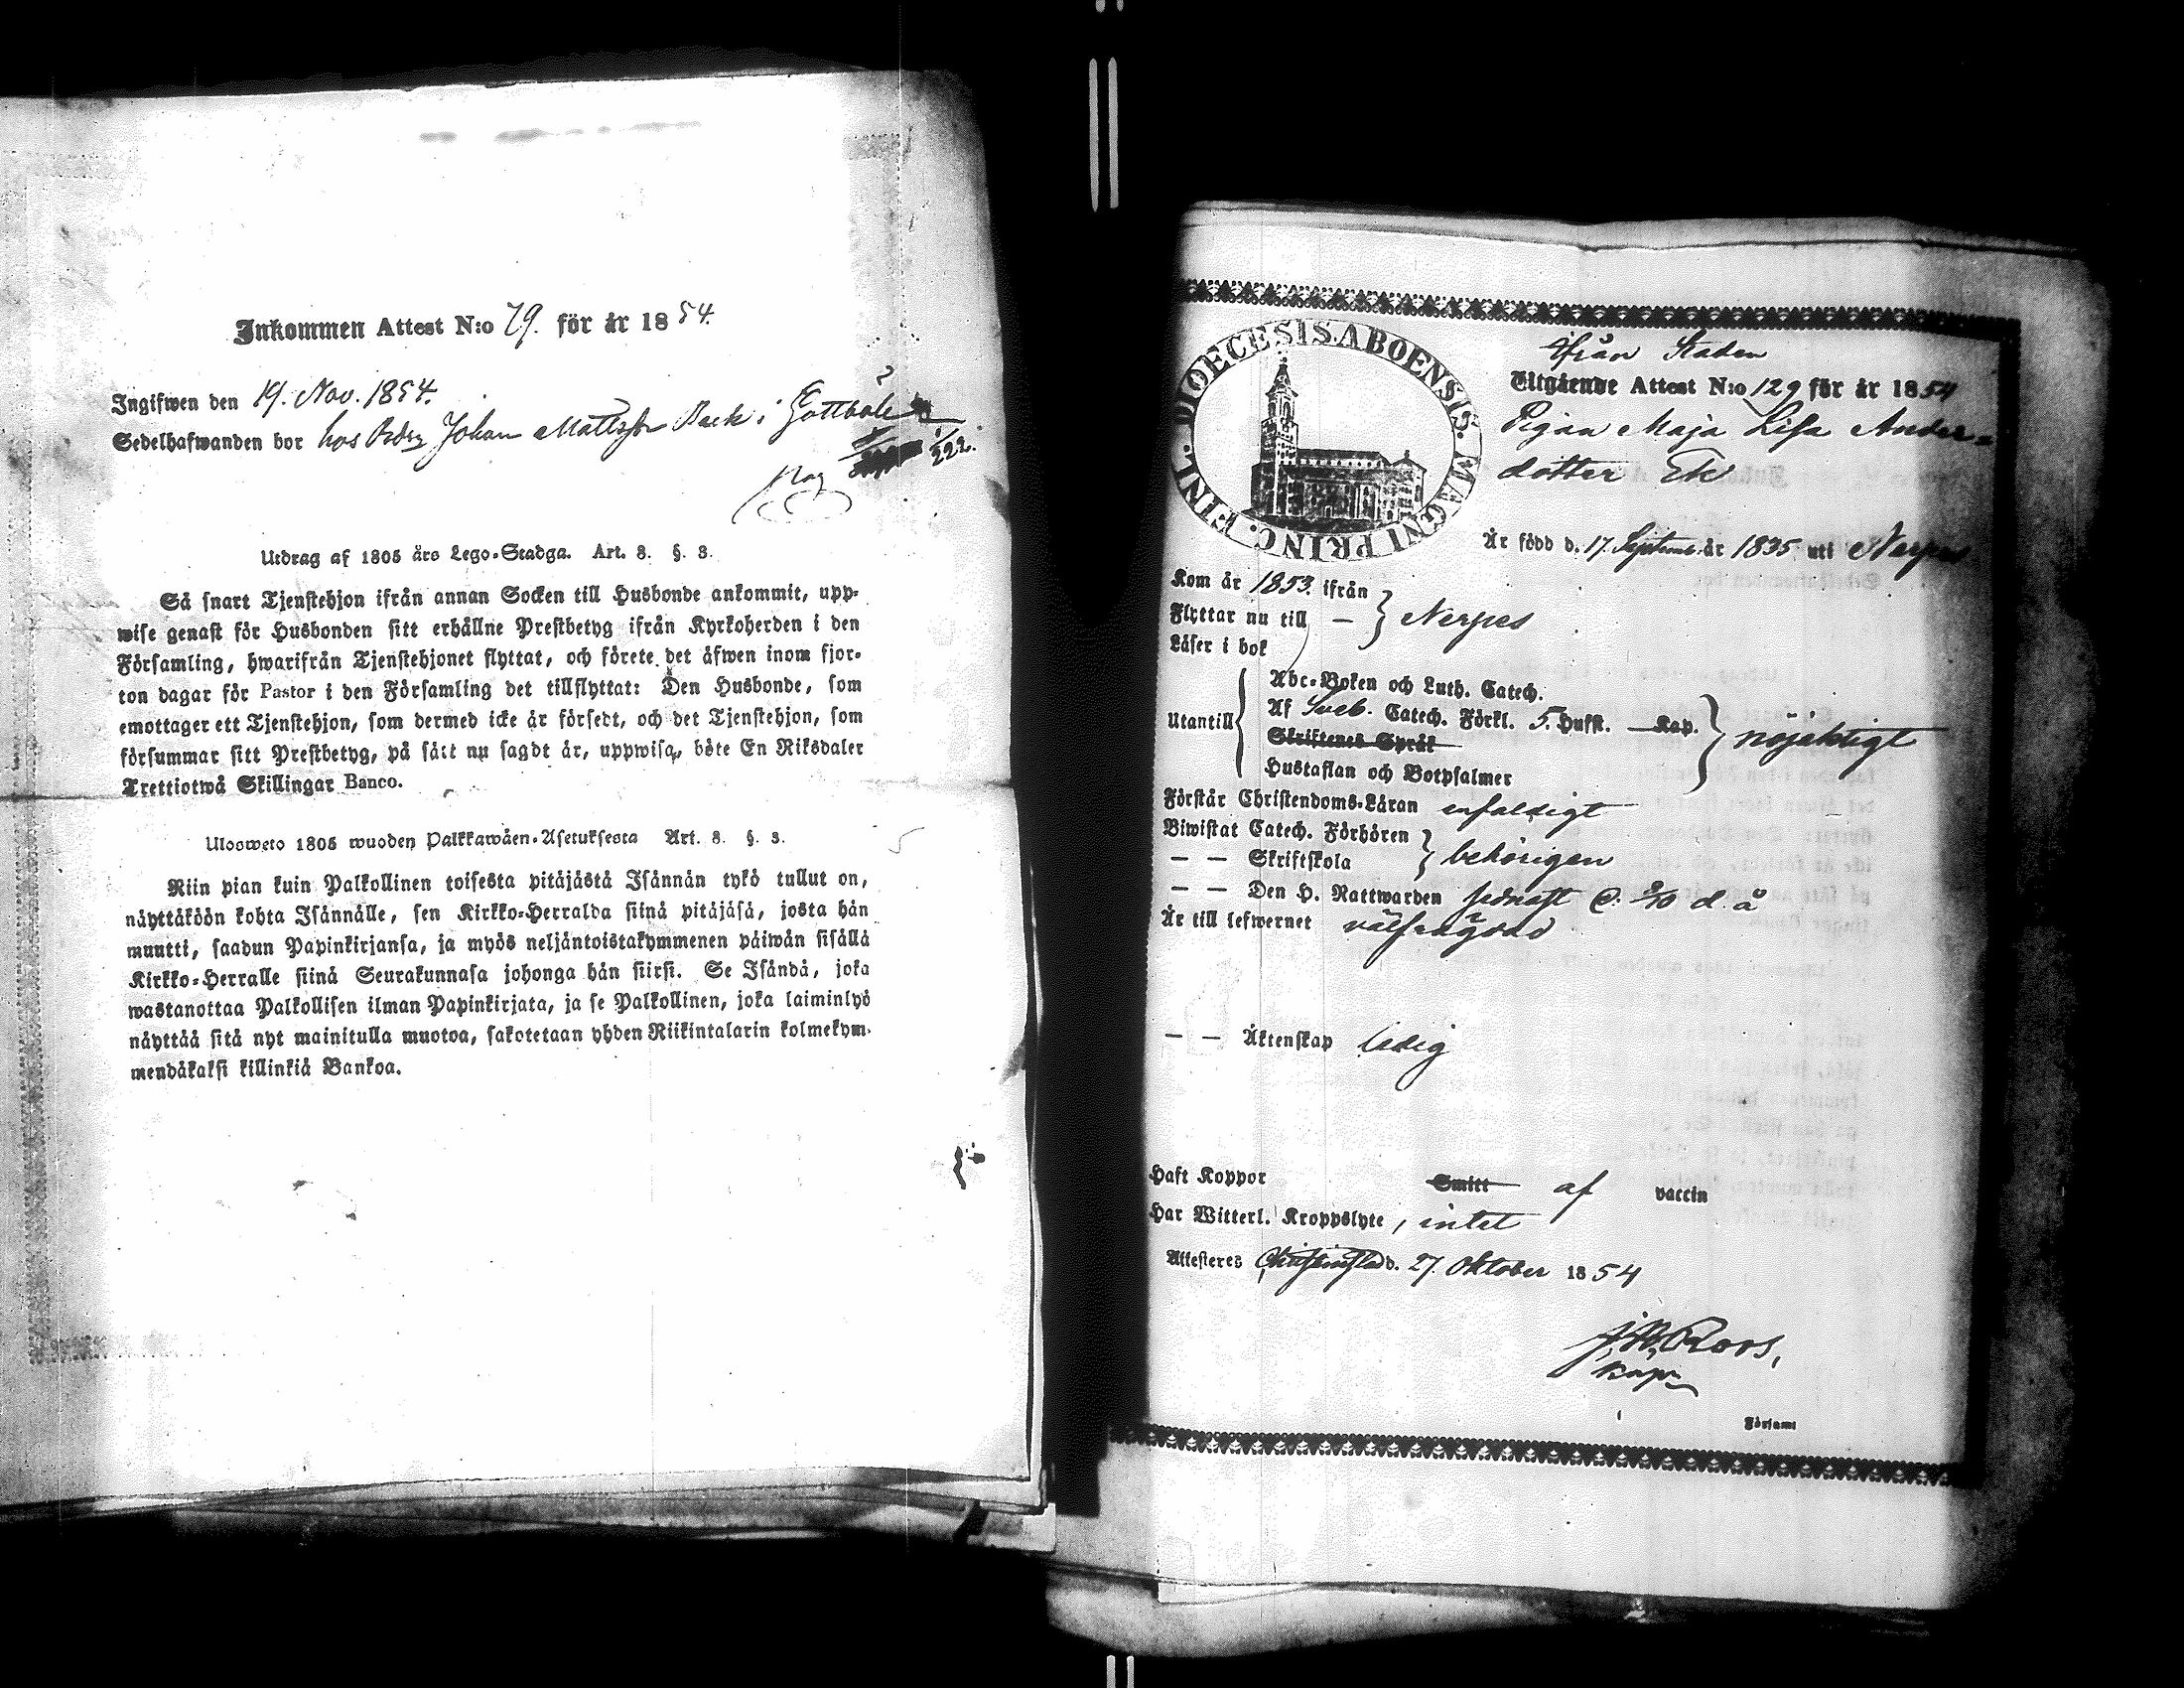 Inkommen Attest N:o 79. för år 1854.
Ingifwen den 19. Nov. 1854.
Sedelhafwanden bor hos Johan Mattsson Back i Gottböle
Pag 222.
Utdrag af 1805 års Lego-Stadga. Art. 8. §. 3.
Så snart Tjenstehjon ifrån annan Socken till Husbonde ankommit, upp-
wise genast för Husbonden sitt erhållne Prestbetyg ifrån Kyrkoherden i den
Församling, hwarifrån Tjenstehjonet flyttat, och förete det äfwen inom fjor-
ton dagar för Pastor i den Församling det tillflyttat: Den Husbonde, som
emottager ett Tjenstehjon, som dermed icke är försedt, och det Tjenstehjon, som
försummar sitt Prestbetyg, på sätt nu sagdt är, uppwisa, böte En Riksdaler
Trettiotwå Skillingar Banco.
Ulosweto 1805 wuoden Palkkawäen-Asetuksesta Art. 8. §. 3.
Niin pian kuin Palkollinen toisesta pitäjästä Isännän tykö tullut on,
näyttäköön kohta Isännälle, sen Kirkko-Herralda siinä pitäjäsä, josta hän
muutti, saadun Papinkirjansa, ja myös neljäntoistakymmenen päiwän sisällä
Kirkko-Herralle siinä Seurakunnasa johonga hän siirsi. Se Isändä, joka
wastanottaa Palkollisen ilman Papinkirjata, ja se Palkollinen, joka laiminlyö
näyttää sitä nyt mainitulla muotoa, sakotetaan yhden Riikintalarin kolmekym-
mendäkaksi killinkiä Bankoa.
DIOECESIS. ABOENSIS. MAGNI PRINC. FINL.
ifrån Staden
Utgående Attest N:o 129 för år 1854
Pigan Maja Lisa Anders-
dotter Ek
Är född d. 17 Septemb. år 1835 uti Nerpes
Kom år 1853. ifrån
Flyttar nu till — } Nerpes
Läser i bok
Abc-Boken och Luth. Catech.
Utantill Af Sveb. Catech. Förkl. 5. Hufst. Kap. nöjaktigt
Skriftenes Språk
Hustaflan och Botpsalmer
Förstår Christendoms-Läran enfaldigt
Biwistat Catech. Förhören
— — Skriftskola } behörigen
— — Den H. Nattwarden sednast d. 8/10 d. å
Är till lefwernet välfrägdad
— — Äktenskap ledig
Haft Koppor Smitt af vaccin
Har Witterl. Kroppslyte, intet
Attesteres Christinestad d. 27. Oktober 1854
J. W. Roos,
Kapn
Församl